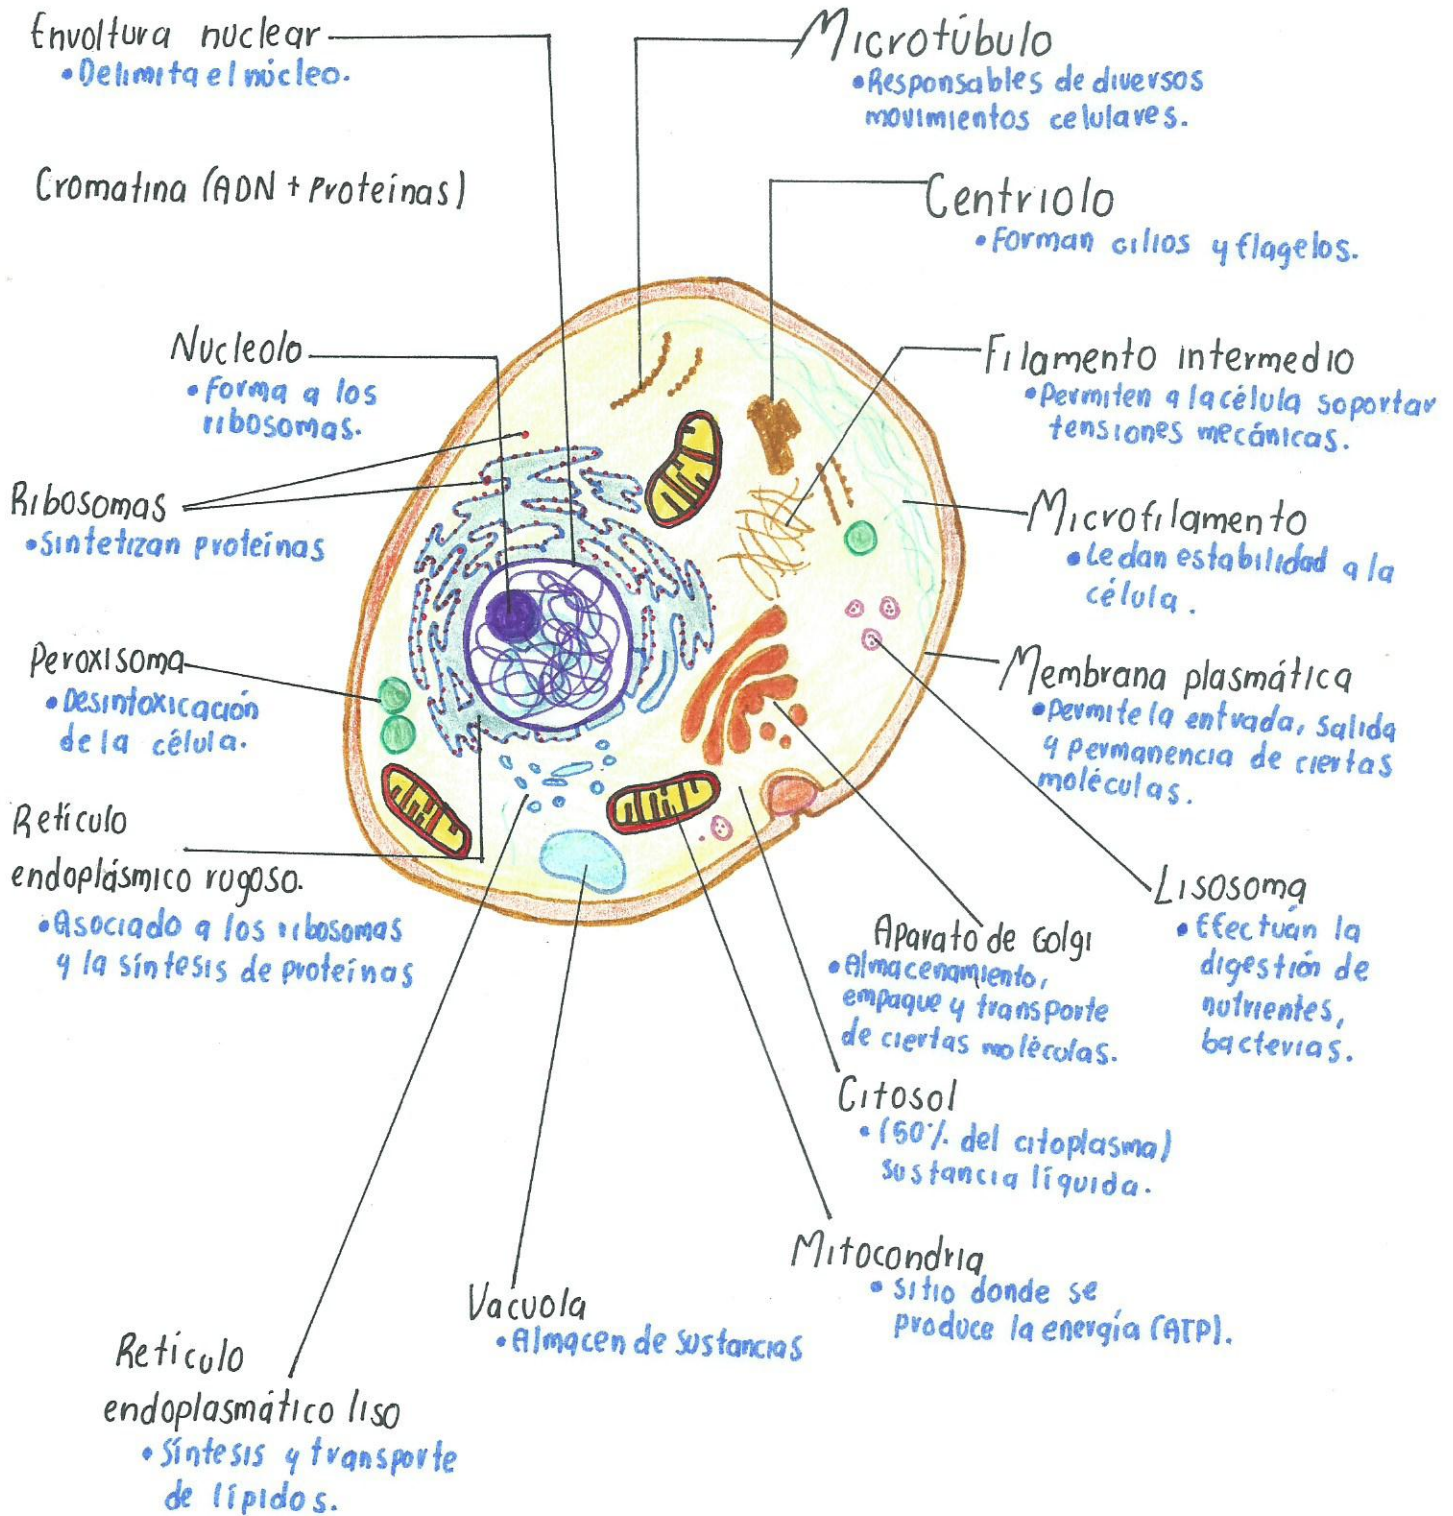 Envoltura nuclear
• Delimita el núcleo.
Cromatina (ADN + Proteínas)
Nucleolo
• Forma a los
ribosomas.
Ribosomas
• Sintetizan proteínas
Peroxisoma
• Desintoxicación
de la célula.
Retículo
endoplásmico rugoso.
• Asociado a los ribosomas
y la síntesis de proteínas
Retículo
endoplasmático liso
• Síntesis y transporte
de lípidos.
Vacuola
• Almacen de sustancias
Microtúbulo
• Responsables de diversos
movimientos celulares.
Centriolo
• Forman cilios y flagelos.
Filamento intermedio
• Permiten a la célula soportar
tensiones mecánicas.
Microfilamento
• Le dan estabilidad a la
célula.
Membrana plasmática
• Permite la entrada, salida
y permanencia de ciertas
moléculas.
Lisosoma
• Efectuán la
digestión de
nutrientes,
bacterias.
Aparato de Golgi
• Almacenamiento,
empaque y transporte
de ciertas moléculas.
Citosol
• (50% del citoplasma)
sustancia líquida.
Mitocondria
• Sitio donde se
produce la energía (ATP).